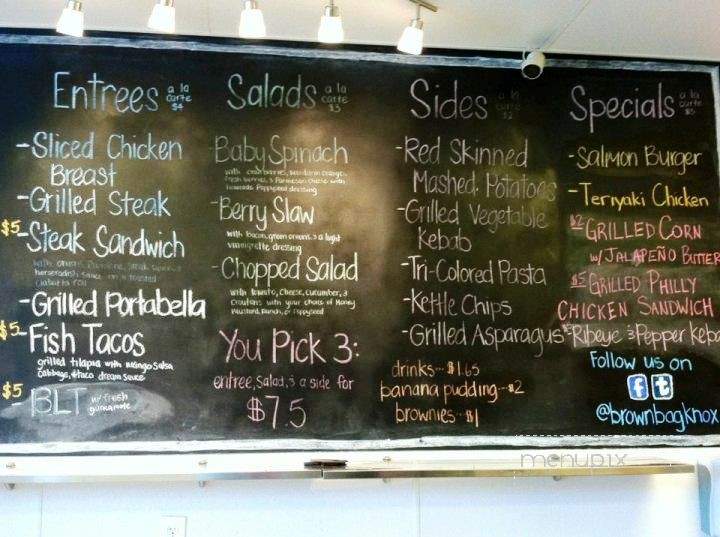 Entrees a la carte $4
-Sliced Chicken
Breast
-Grilled Steak
$5 -Steak Sandwich
with onions, Provolone, steak
horseradish sauce on a toasted
-Grilled Portabella
$5 -Fish Tacos
grilled tilapia with mango salsa
cabbage, & taco dream sauce
$5 -BLT w/ fresh
guacamole
Salads a la carte $3
-Baby Spinach
with cranberries, mandarin oranges,
fresh berries, & Parmesan cheese with
Poppyseed dressing
-Berry Slaw
with bacon, green onions, & a light
vinaigrette dressing
-Chopped Salad
with tomato, cheese, cucumber, &
croutons with your choice of Honey
Mustard, Ranch, or Poppyseed
You Pick 3:
entree, salad, & a side for
$7.5
Sides a la carte $2
-Red Skinned
Mashed Potatoes
-Grilled Vegetable
Kebab
-Tri-Colored Pasta
-Kettle Chips
-Grilled Asparagus
drinks--$1.65
banana pudding--$2
brownies--$1
Specials a la carte $5
-Salmon Burger
-Teriyaki Chicken
$2 GRILLED CORN
w/ JALAPEÑO BUTTER
$5 GRILLED PHILLY
CHICKEN SANDWICH
Ribeye & Pepper
Follow us on
f t
@brownbagknox
menupix